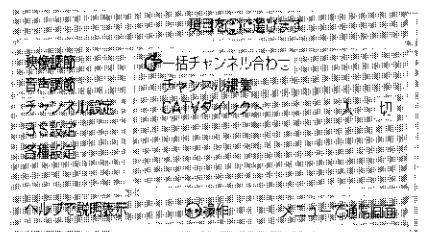 項目をここに選びます
映像調節
音声調節
チャンネル設定
各種設定
一括チャンネル合わせ
チャンネル編集
CATVダイレクト 入 切
ヘルプで説明表示
メニューで通常画面